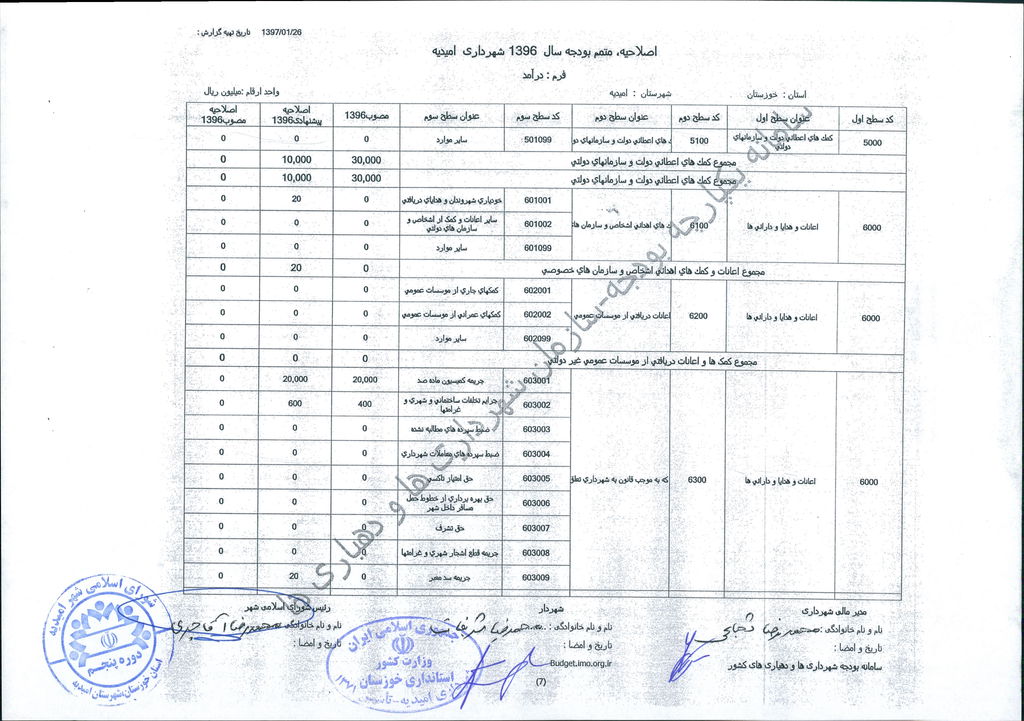 تاریخ تهیه گزارش : 1397/01/26
اصلاحیه، متمم بودجه سال 1396 شهرداری امیدیه
فرم : درآمد
استان : خوزستان شهرستان : امیدیه واحد ارقام :میلیون ریال
کد سطح اول عنوان سطح اول کد سطح دوم عنوان سطح دوم کد سطح سوم عنوان سطح سوم مصوب1396 اصلاحیه پیشنهادی1396 اصلاحیه مصوب1396
5000 کمک های اعطائی دولت و سازمانهای دولتی 5100 های اعطائی دولت و سازمانهای دو 501099 سایر موارد 0 0 0
مجموع کمک های اعطائی دولت و سازمانهای دولتی 30,000 10,000 0
مجموع کمک های اعطائی دولت و سازمانهای دولتی 30,000 10,000 0
6000 اعانات و هدایا و دارائی ها 6100 های اهدائی اشخاص و سازمان های
601001 خودیاری شهروندان و هدایای دریافتی 0 20 0
601002 سایر اعانات و کمک از اشخاص و سازمان های دولتی 0 0 0
601099 سایر موارد 0 0 0
مجموع اعانات و کمک های اهدائی اشخاص و سازمان های خصوصی 0 20 0
6000 اعانات و هدایا و دارائی ها 6200 اعانات دریافتی از موسسات عمومی
602001 کمکهای جاری از موسسات عمومی 0 0 0
602002 کمکهای عمرانی از موسسات عمومی 0 0 0
602099 سایر موارد 0 0 0
مجموع کمک ها و اعانات دریافتی از موسسات عمومی غیر دولتی 0 0 0
6000 اعانات و هدایا و دارائی ها 6300 که به موجب قانون به شهرداری تعلق
603001 جریمه کمیسیون ماده صد 20,000 20,000 0
603002 جرایم تخلفات ساختمانی و شهری و غرامتها 400 600 0
603003 ضبط سپرده های مطالبه نشده 0 0 0
603004 ضبط سپرده های معاملات شهرداری 0 0 0
603005 حق امتیاز تاکسی 0 0 0
603006 حق بهره برداری از خطوط حمل مسافر داخل شهر 0 0 0
603007 حق تشرف 0 0 0
603008 جریمه قطع اشجار شهری و غرامتها 0 0 0
603009 جریمه سد معبر 0 20 0
سامانه یکپارچه بودجه-سازمان شهرداری ها و دهیاری ها
مدیر مالی شهرداری شهردار رئیس شورای اسلامی شهر
نام و نام خانوادگی : محمدرضا نام و نام خانوادگی : نام و نام خانوادگی : محمدرضا آقاجری
تاریخ و امضا : تاریخ و امضا : تاریخ و امضا :
سامانه بودجه شهرداری ها و دهیاری های کشور Budget.imo.org.ir
(7)
جمهوری اسلامی ایران
وزارت کشور
استانداری خوزستان
شورای اسلامی شهر امیدیه
دوره پنجم
استان خوزستان،شهرستان امیدیه